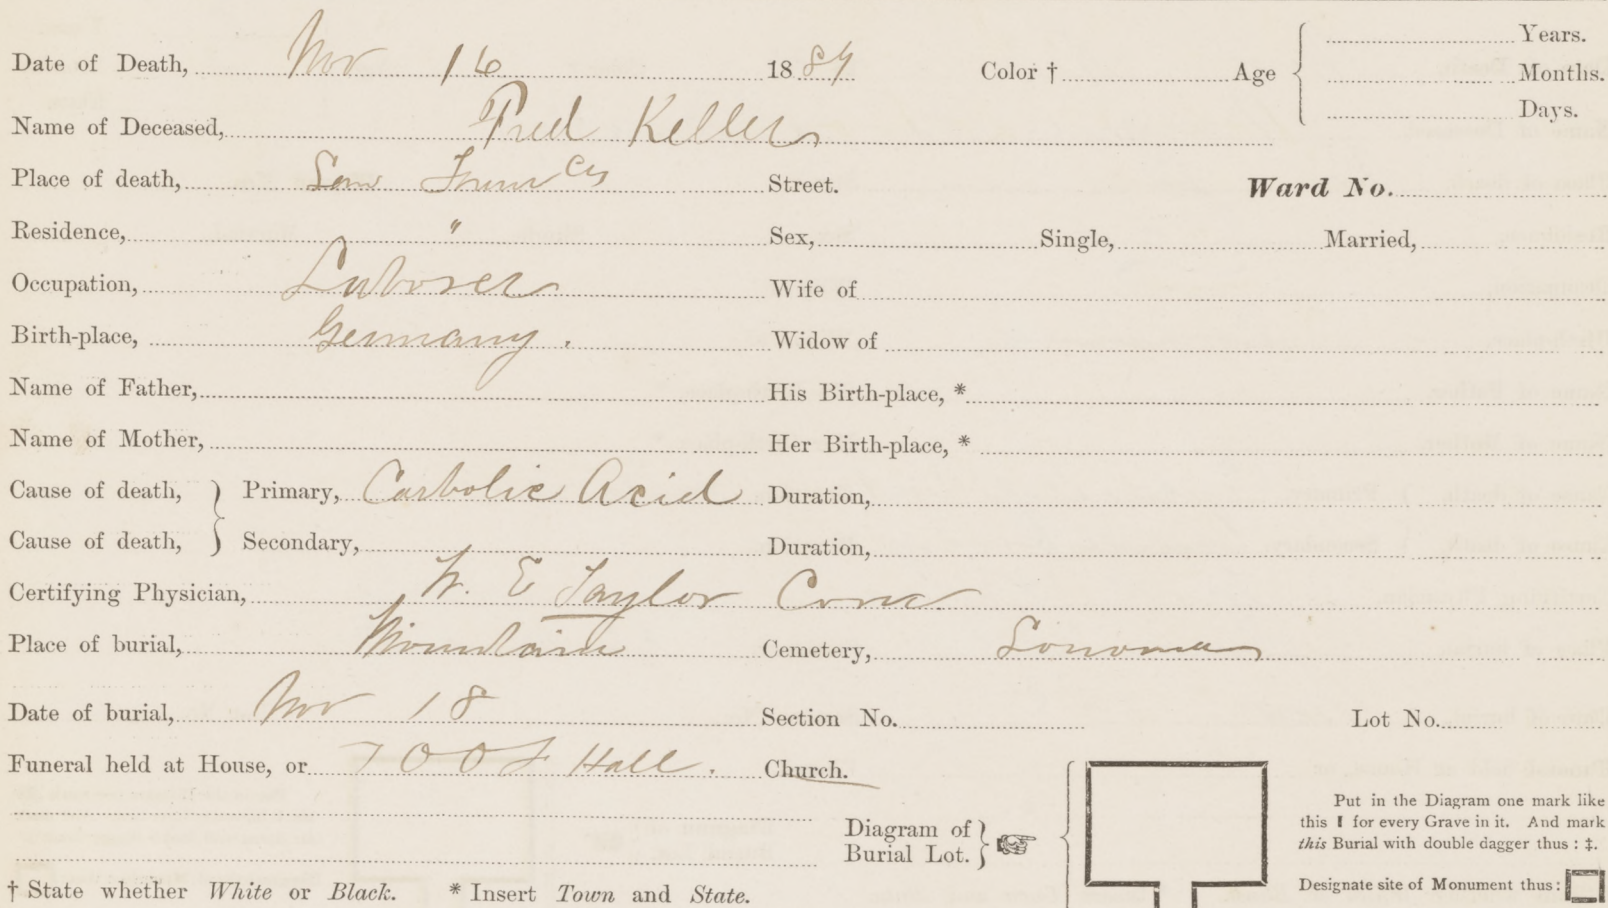 Date of Death, Nov 16 1889 Color † Age Years.
Months.
Days.
Name of Deceased, Fred Keller
Place of death, San Francis Street. Ward No.
Residence, " Sex, Single, Married,
Occupation, Laborer Wife of
Birth-place, Germany. Widow of
Name of Father, His Birth-place, *
Name of Mother, Her Birth-place, *
Cause of death, Primary, Carbolic Acid Duration,
Cause of death, Secondary, Duration,
Certifying Physician, W. E Taylor Coro
Place of burial, Mountain Cemetery, Sonoma
Date of burial, Nov 18 Section No. Lot No.
Funeral held at House, or IOOF Hall. Church.
Diagram of
Burial Lot.
Put in the Diagram one mark like
this I for every Grave in it. And mark
this Burial with double dagger thus : ‡.
Designate site of Monument thus :
† State whether White or Black. * Insert Town and State.